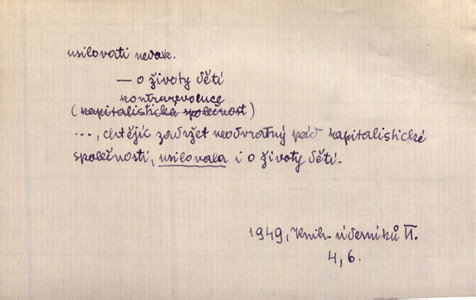 usilovati nedok.
— o životy dětí
kontrarevoluce
(kapitalistická společnost)
..., chtějíc zadržet neodvratný pád kapitalistické
společnosti, usilovala i o životy dětí.
1949, Knih. úderníků VI.
4, 6.